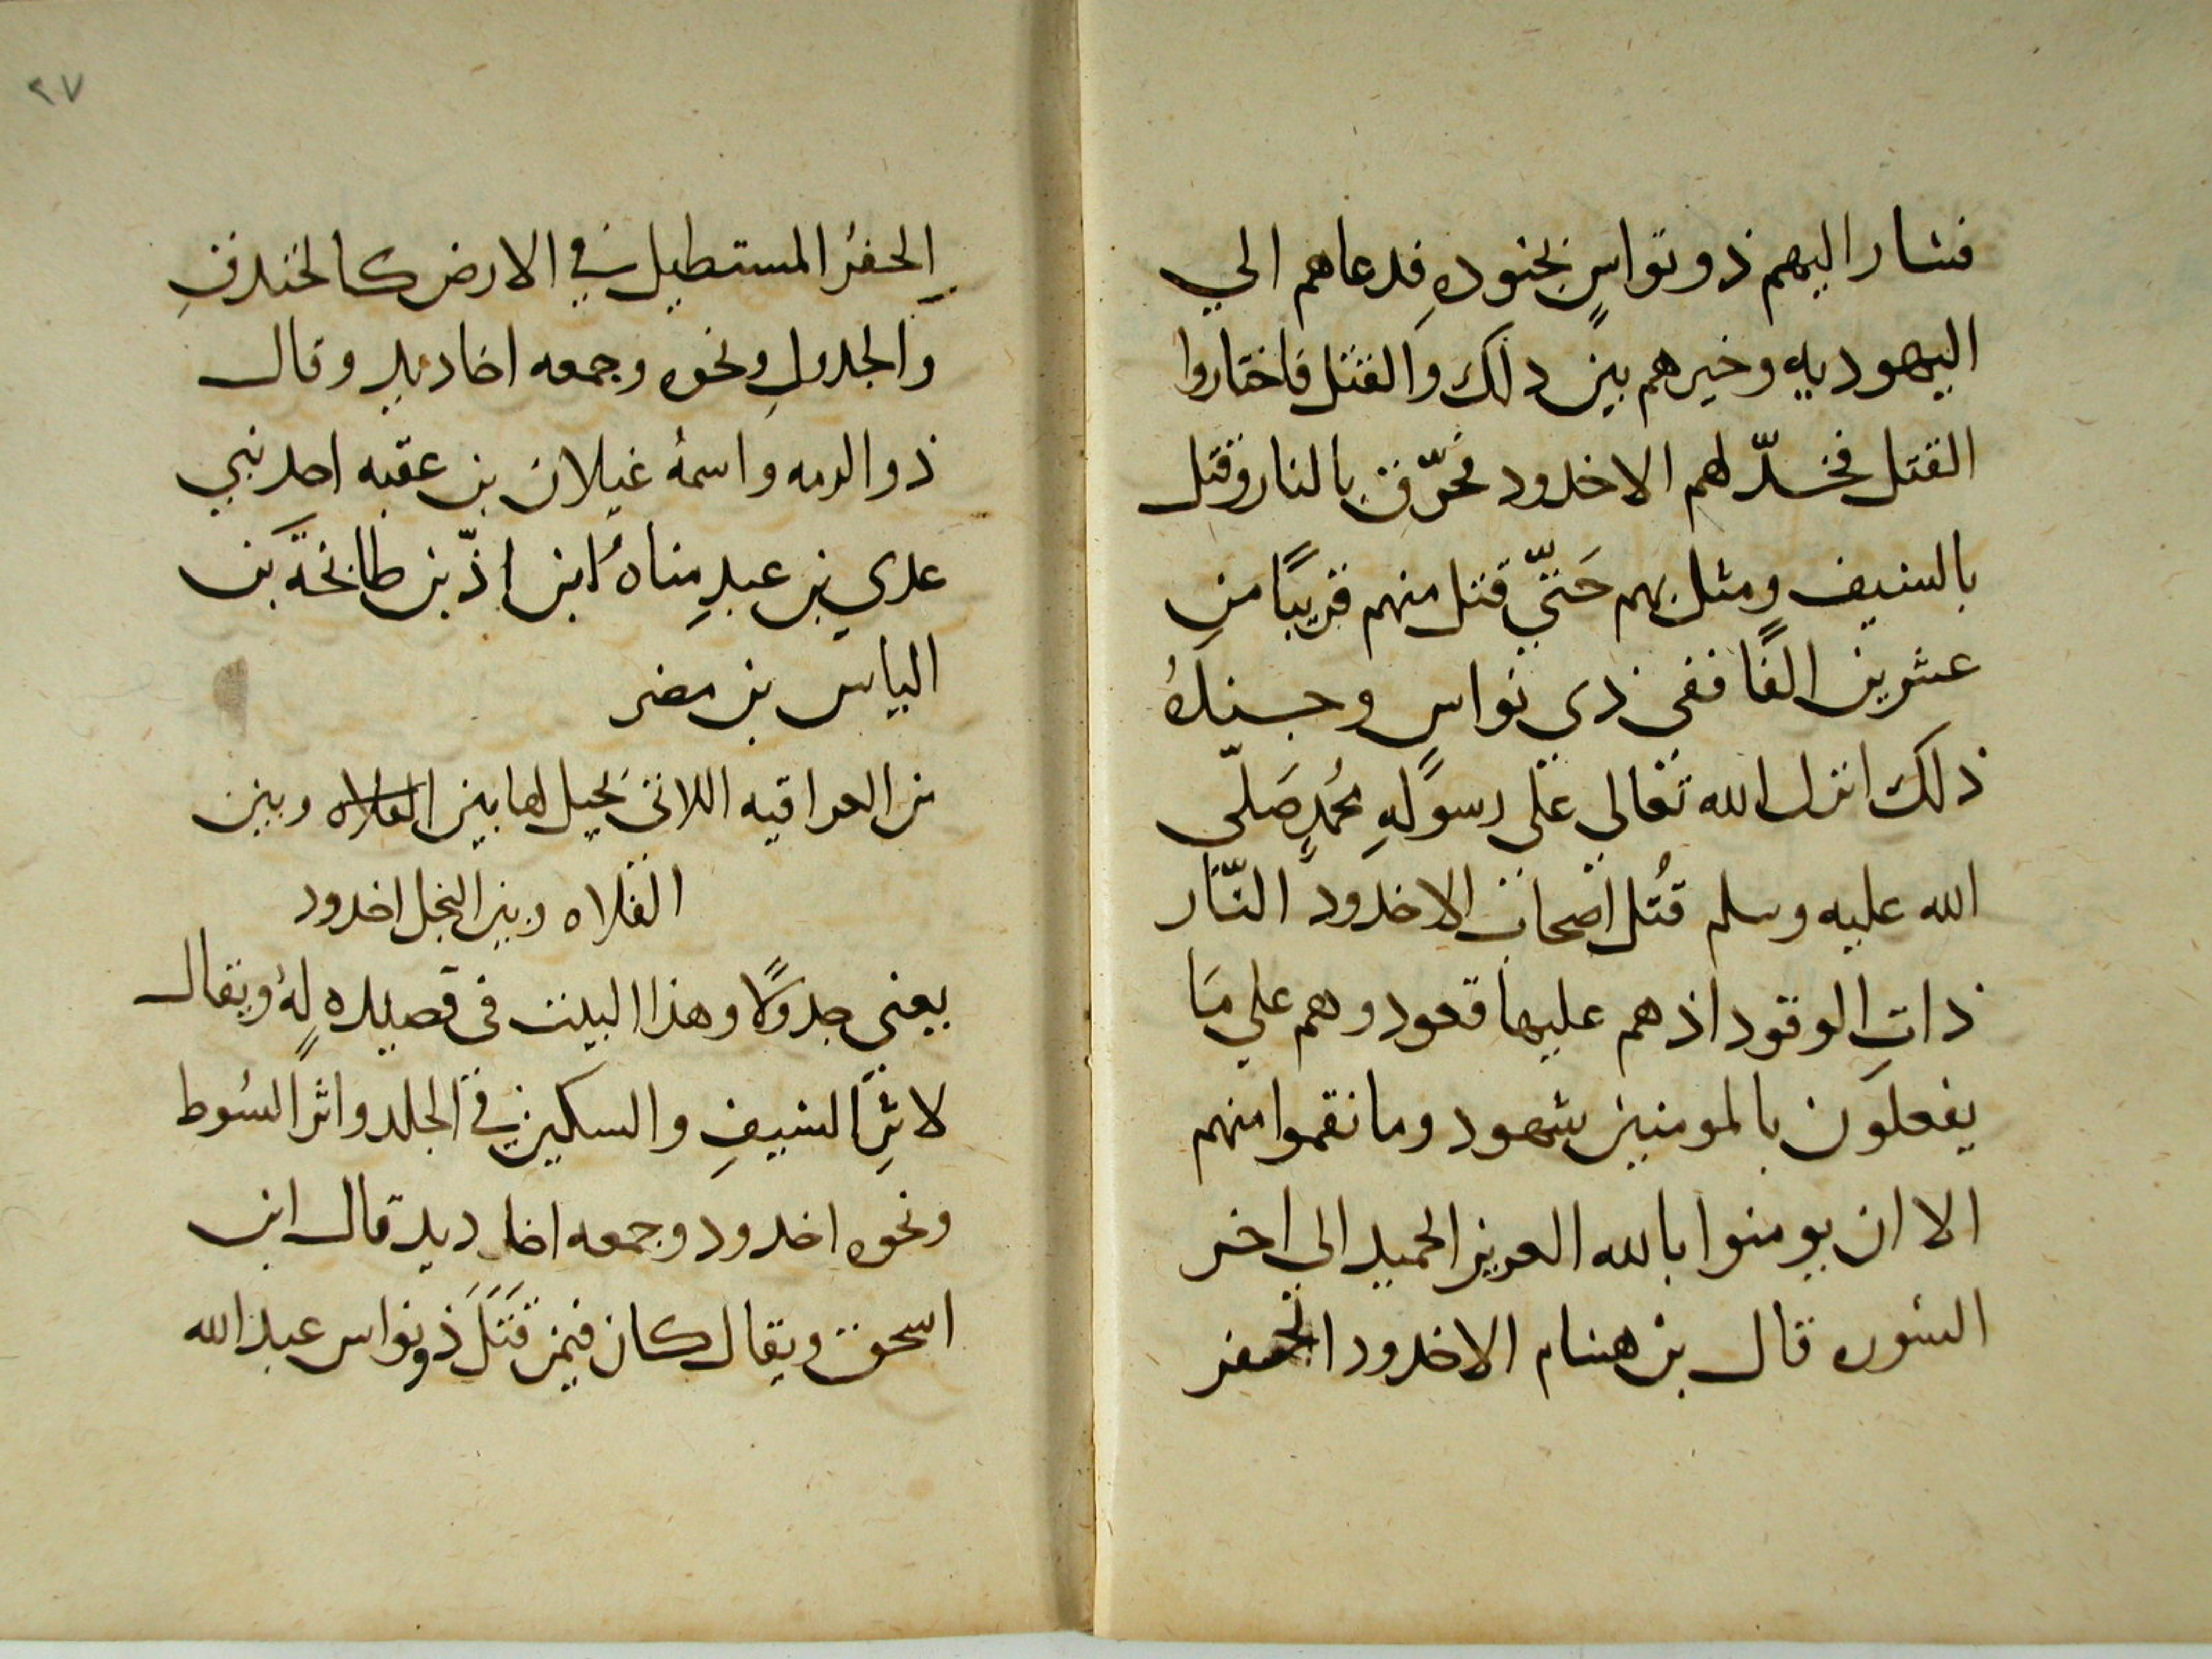 فسار اليهم ذو نواسٍ بجنودهِ فدعاهم الي
اليهوديه وخيرهم بين دلك والقتل فاختاروا
القتل فخدّ لهم الاخدود فحرّق بالنار وقتل
بالسيف ومثل بهم حَتيّ قتل منهم قريبًا من
عشرين الفًا ففي ذي نواسٍ وجندهُ
ذلك انزل الله تعالي علي رسولهِ محُمدٍ صَلّي
الله عليه وسلم قُتل اصحاب الاخدود النّار
ذاتِ الوقود اذ هم عليها قعود وهم علي مَا
يفعلون بالمومنين شهود وما نقموا منهم
الا ان يومنوا بالله العزيز الحميد الى اخر
السوره قال بن هشام الاخدود الحفر
٢٧
الحفرُ المستطيل في الارض كالخندقِ
والجدولِ ونحوه وجمعه اخاديد وقال
ذو الرمه واسمهُ غيلان بن عقبه احد بني
عدي بن عبدِ مناهُ ابن ادّ بن طابخَة بن
الياس بن مضر
من العراقيه اللاتى يحيل لها بين الفلاه وبين
الفلاه وبين النخل اخدود
يعني جدولًا وهذا البيت في قصيده لهُ ويقال
لاثرِ السيفِ والسكين في الجلد واثر السُوط
ونحوه اخدود وجمعه اخاديد قال ابن
اسحق ويقال كان فيمن قَتَلَ ذو نواس عبد الله